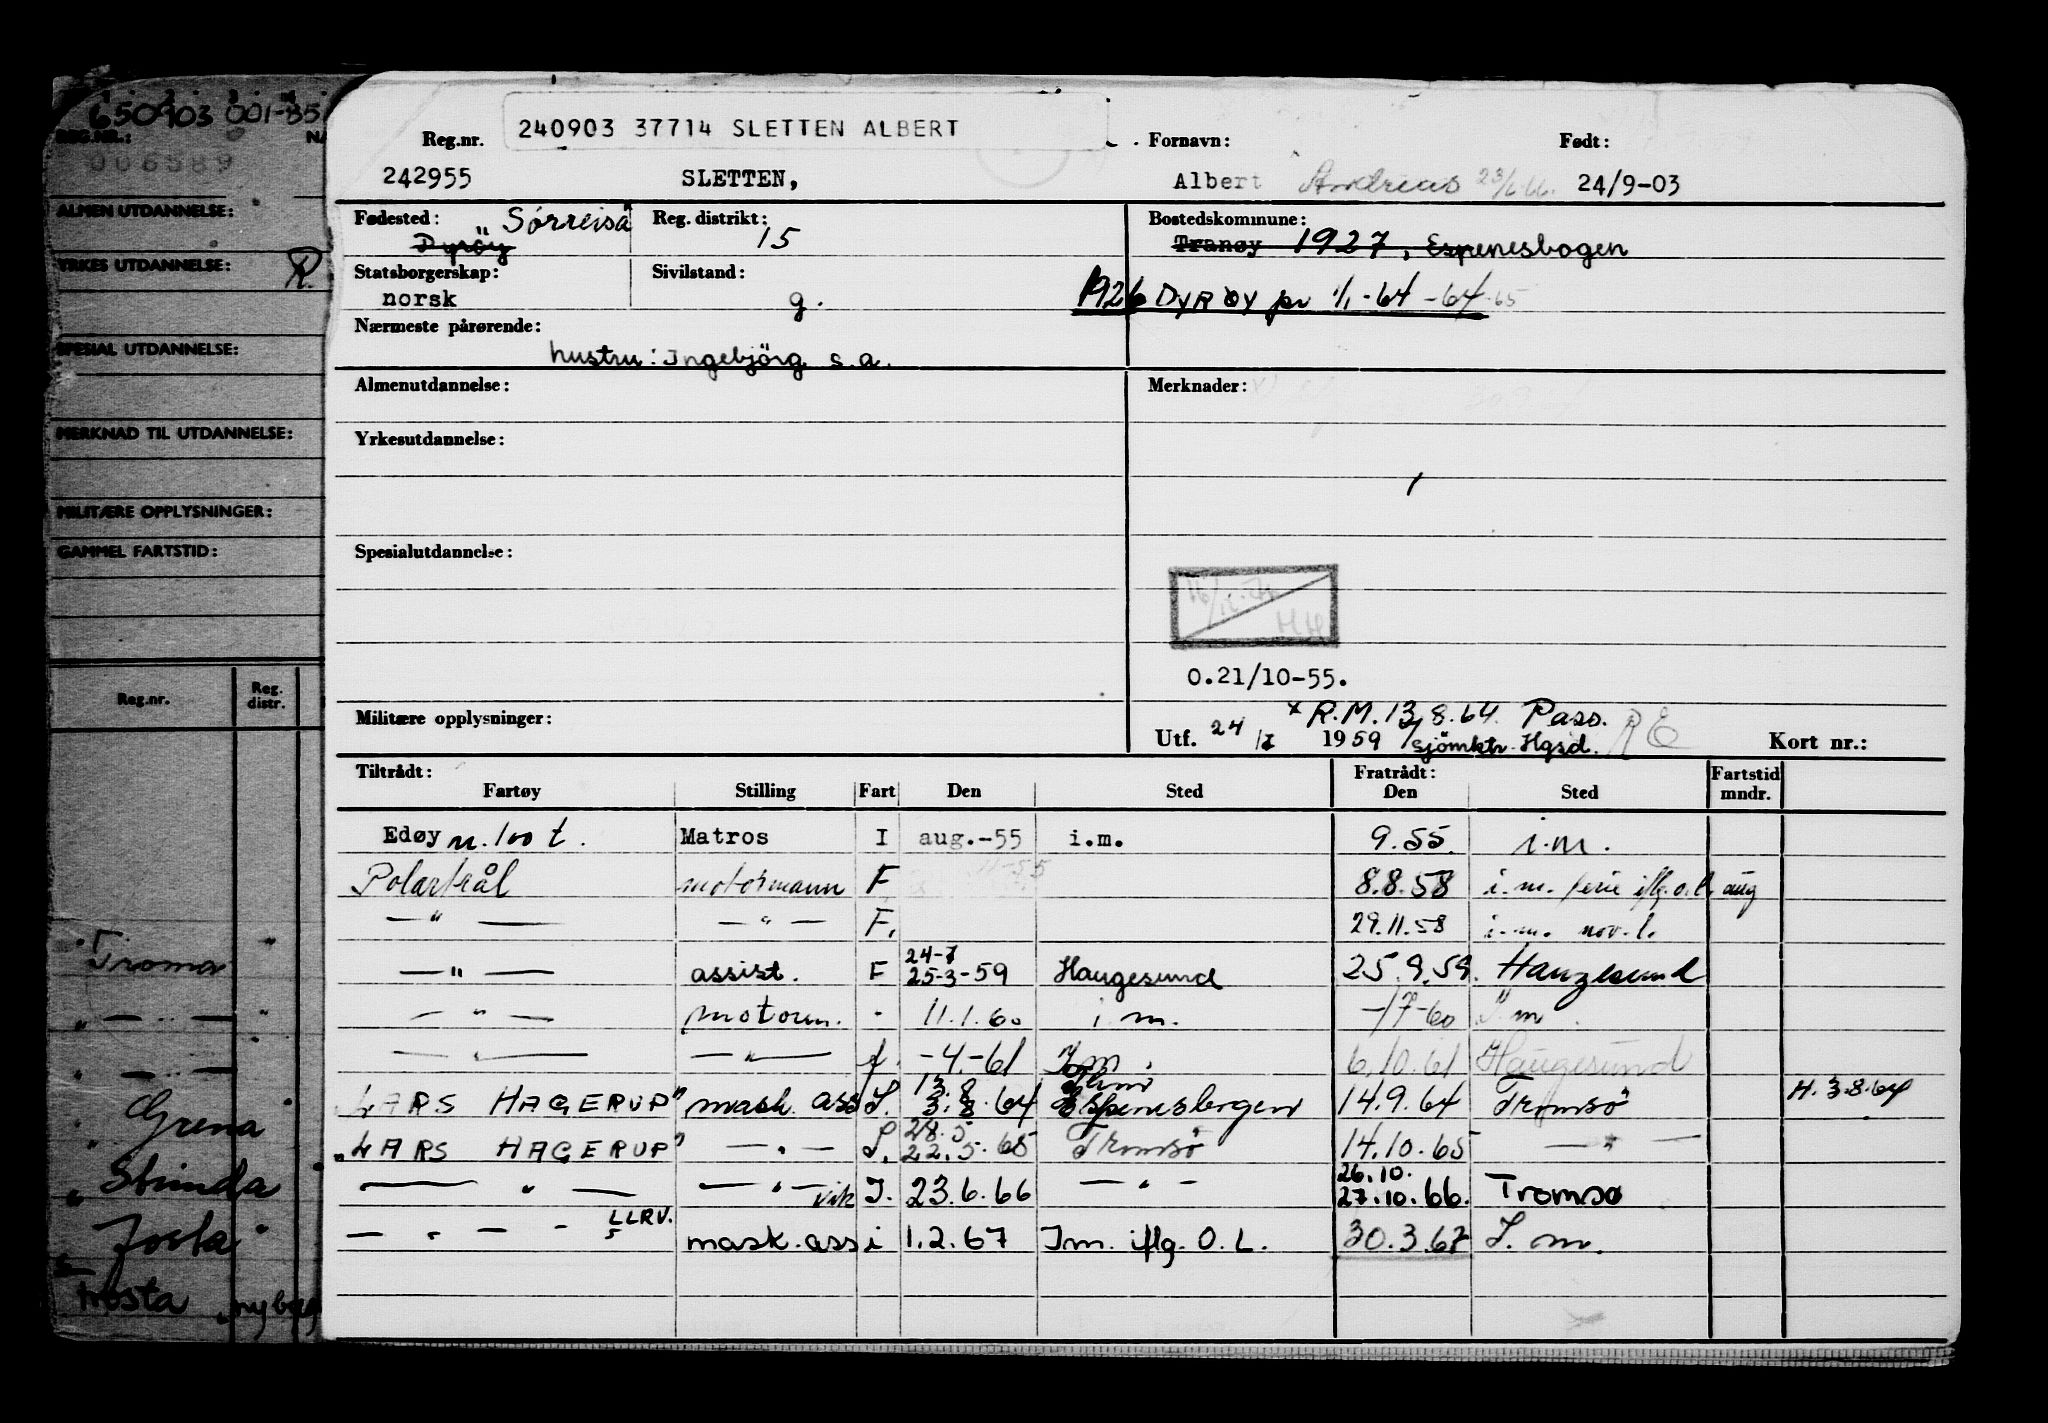 650903 001-85
REG.NR.:
006589
ALMEN UTDANNELSE:
YRKES UTDANNELSE: R.
SPESIAL UTDANNELSE:
MERKNAD TIL UTDANNELSE:
MILITÆRE OPPLYSNINGER:
GAMMEL FARTSTID:
Reg.nr. Reg. distr.
Troma "
" — " — "
" — " —
" Grena
" Strinda "
" Josta "
Trosta
240903 37714 SLETTEN ALBERT
Reg.nr. Fornavn: Født:
242955 SLETTEN, Albert Andreas 24/9-03
Fødested: "Sørreisa" Reg. distrikt: Bostedskommune:
Dyrøy 15 Tranøy 1927, Espenesbogen
Statsborgerskap: Sivilstand:
norsk g. 1926 DYRØY pr 1/1-64 -64-65
Nærmeste pårørende:
hustru: Ingebjörg s.a.
Almenutdannelse: Merknader:
Yrkesutdannelse:
Spesialutdannelse:
0.21/10-55.
Militære opplysninger: x R.M. 13/8.64. Pass.
Utf. 24/I 1959 sjömktr. Hgsd. RE Kort nr.:
Tiltrådt: Fratrådt: Fartstid
Fartøy Stilling Fart Den Sted Den Sted mndr.
Edøy n. 100 t. Matros I aug.-55 i.m. 9.55. i.m.
Polartrål motormann F 8.8.58 i.m. ferie iflg. o.l. aug
— " — — " — F. 29.11.58 i.m. nov. l.
24-7
— " — assist. F 25-3-59 Haugesund 25.9.59. Haugesund
— " — motorm. - 11.1.60 i.m. -/7-60 I m.
— " — — " — f. -4-61 I.m. 6.10.61 Haugesund
13.8
"LARS HAGERUP" mask. ass I. 3.8.64 Espenesbogen 14.9.64 Tromsö H. 3.8.64
28.5.
"LARS HAGERUP" — " — I. 22.5.65 Tromsö 14.10.65 — " —
26.10.
— " — — " — vik I. 23.6.66 — " — 27.10.66. Tromsø
LLRV.
— " — mask. ass i 1.2.67 Im. iflg. O.L. 30.3.67 I. m.